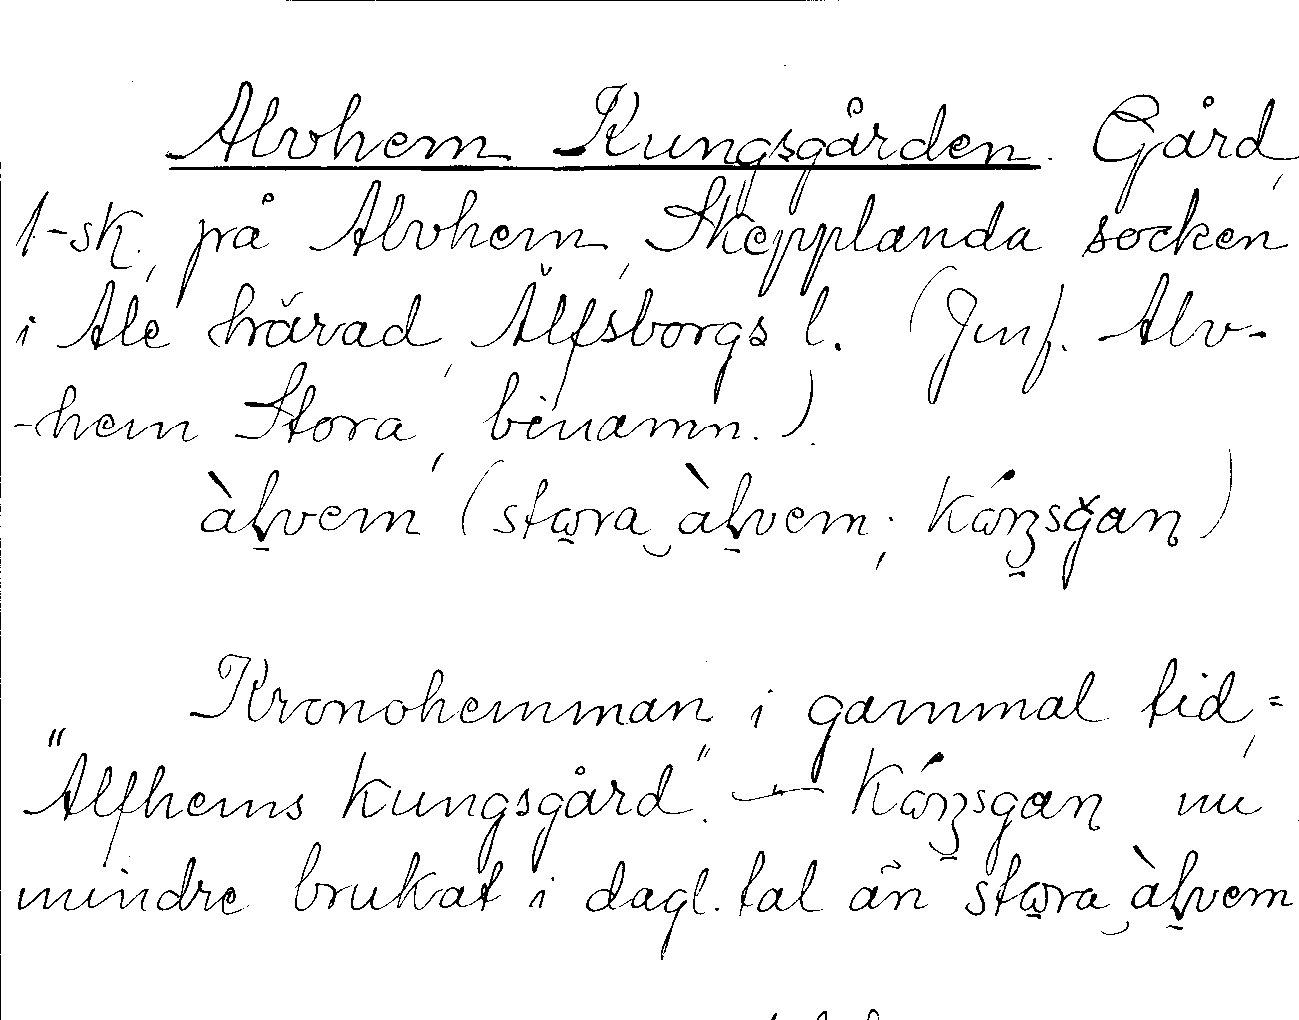 Alvhem Kungsgården. Gård,
1-sk. på Alvhem, Skepplanda socken
i Ale härad, Älfsborgs l. (Jmf. Alv-
-hem Stora, binamn.).
àlvem (stora àlvem; Kóŋsgan)
Kronohemman i gammal tid, =
"Alfhems Kungsgård". — Kóŋsgan nu
mindre brukat i dagl. tal än stora àlvem